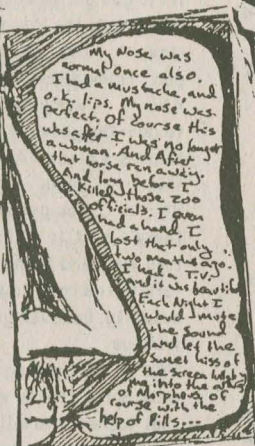 My Nose was
normal once also.
I had a mustache, and
o.k. lips. My nose was
perfect. Of course this
was after I was no longer
a woman. And After
that horse ran away.
And long before I
killed those zoo
officials. I even
had a hand. I
lost that only
two months ago.
I had a T.V.
and it was beautiful
Each Night I
would mute
the sound
and let the
sweet hiss of
the screen
me into the arms
of Morpheus, of
course with the
help of Pills...